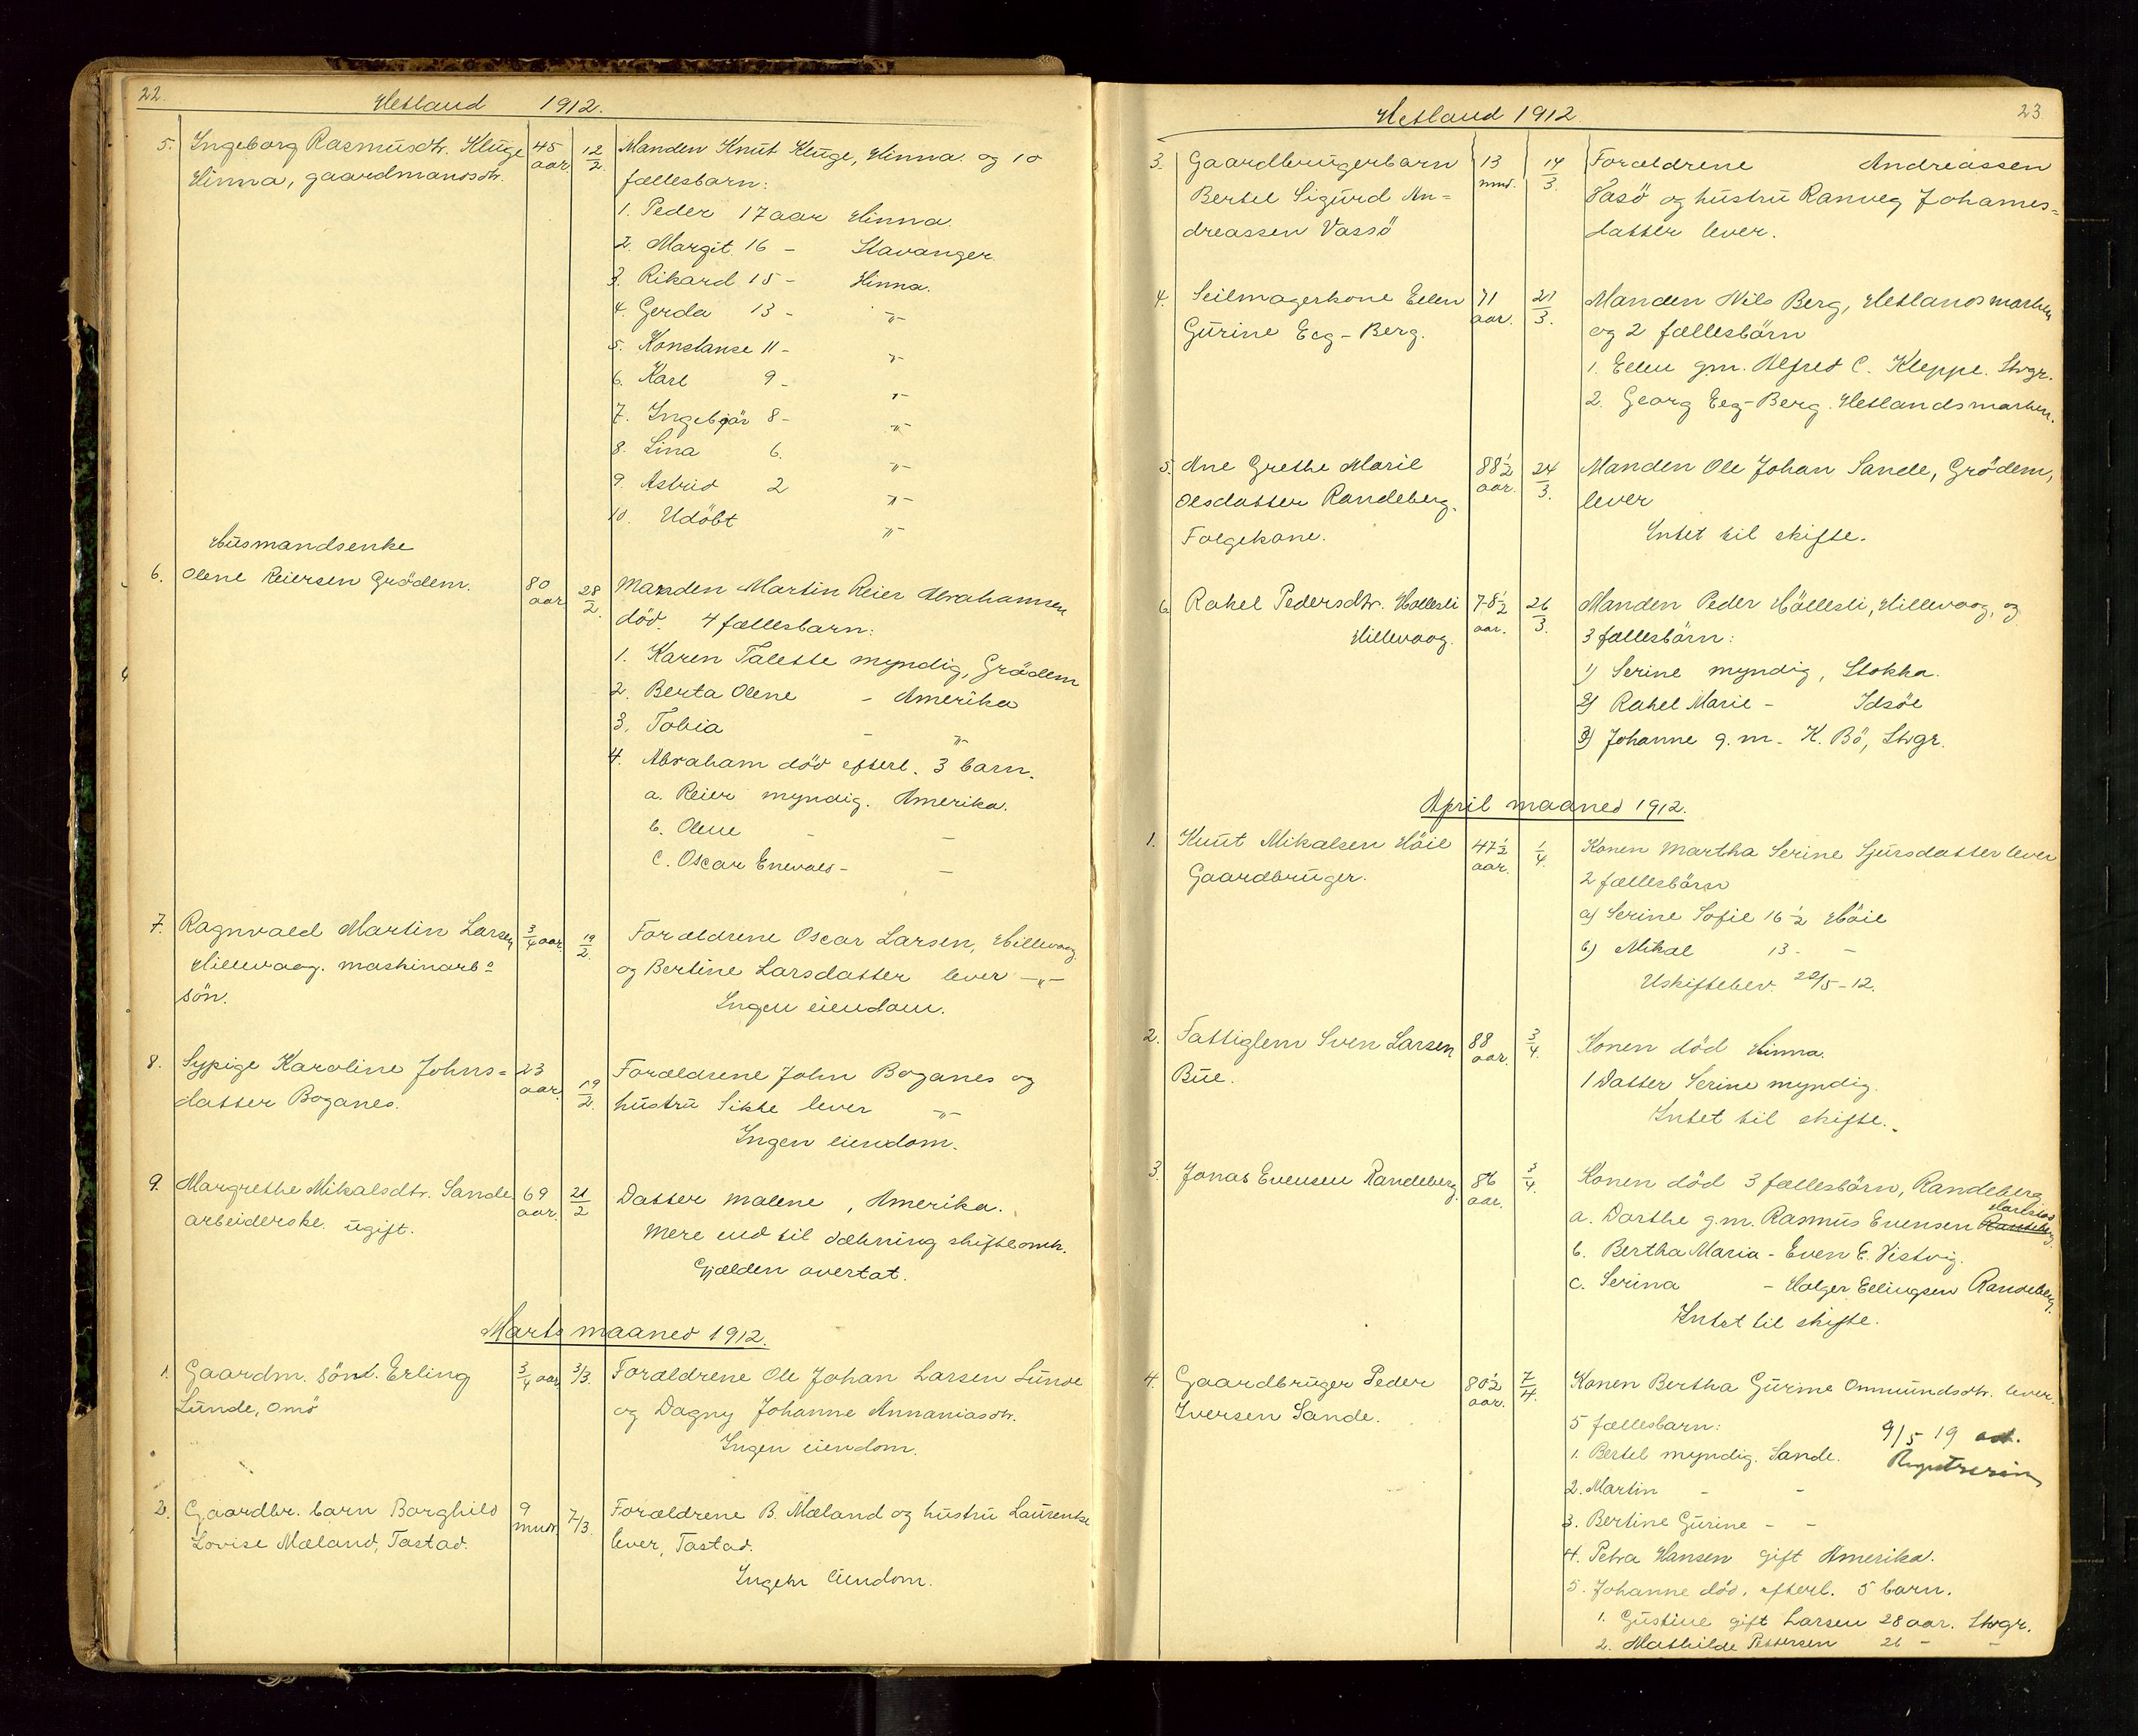 22.
Hetland 1912.
5. Ingeborg Rasmusdtr. Kluge 45 aar. 12/2 Manden Knut Kluge, Hinna og 10
Hinna, gaardmandsdtr. fællesbarn:
1. Peder 17 aar Hinna.
2. Margit 16 - Stavanger.
3. Rikard 15 - Hinna.
4. Gerda 13 - -"-
5. Konstanse 11 - -"-
6. Karl 9 - -"-
7. Ingebjör 8 - -"-
8. Lina 6. -"-
9. Astrid 2 -"-
10. Udöbt -"-
Husmandsenke
6. Olene Reiersen Grödem. 80 aar 28/2. Manden Martin Reier Abrahamsen
död. 4 fællesbarn:
1. Karen Talette myndig, Grödem
2. Berta Olene - Amerika
3. Tobia - -"-
4. Abraham död efterl. 3 barn.
a. Reier myndig. Amerika.
b. Olene - -
c. Oscar Enevald - -
7. Ragnvald Martin Larsen 3/4 aar 19/2. Forældrene Oscar Larsen, Hillevaag
Hillevaag. maskinarb. og Bertine Larsdatter lever -"-
sön. Ingen eiendom.
8. Sypige Karoline Johns= 23 aar 19/2. Forældrene John Boganes og
datter Boganes. hustru Sikke lever -"-
Ingen eiendom.
9. Margrethe Mikalsdtr. Sande 69 aar. 21/2 Datter Malene, Amerika.
arbeiderske. ugift. Mere end til dækning skifteomk.
Gjælden overtat.
Marts maaned 1912.
1. Gaardm. sönd. Erling 3/4 aar 3/3. Forældrene Ole Johan Larsen Lunde
Lunde, Omö og Dagny Johanne Annaniasdtr.
Ingen eiendom.
2. Gaardbr. barn Borghild 9 mndr. 7/3. Forældrene B. Mæland og hustru Laurentse
Lovise Mæland, Tastad. lever, Tastad.
Ingen eiendom.
Hetland 1912
23.
3. Gaardbrugerbarn 13 mnd. 14/3. Forældrene Andreassen
Bertel Sigurd An= Vasö og hustru Ranveg Johannes=
dreassen Vassö datter lever.
4. Seilmagerkone Ellen 71 aar. 21/3. Manden Nils Berg, Hetlandsmarken
Gurine Eeg-Berg. og 2 fællesbörn
1. Ellen gm. Alfred C. Kleppe. Stvgr.
2. Georg Eeg-Berg. Hetlandsmarken.
5. Ane Grethe Marie 88 1/2 aar. 24/3. Manden Ole Johan Sande, Grödem,
Olsdatter Randeberg. lever
Folgekone. Intet til skifte.
6. Rakel Pedersdtr. Hollesli 78 1/2 aar. 26/3. Manden Peder Höllesli, Hillevaag, og
Hillevaag. 3 fællesbörn:
1) Serine myndig, Stokka.
2) Rakel Marie - Idsöe
3) Johanne g.m. K. Bö, Stvgr.
April maaned 1912.
1. Knut Mikalsen Höie 47 1/2 aar. 1/4. Konen Martha Serine Sjursdatter lever
Gaardbruger. 2 fællesbörn
a) Serine Sofie 16 1/2 Höie
b) Mikal 13 - -
Uskiftebev. 22/5-12.
2. Fattiglem Sven Larsen 88 aar. 3/4. Konen död Hinna.
Bue. 1 Datter Serine myndig.
Intet til skifte.
3. Jonas Evensen Randeberg 86 aar. 3/4. Konen död 3 fællesbörn, Randeberg
a. Dorthe g.m. Rasmus Evensen Randeberg. Harestad
b. Bertha Maria - Even E. Vistvig.
c. Serina - Holger Ellingsen Randeberg.
Intet til skifte.
4. Gaardbruger Peder 80 1/2 aar. 7/4. Konen Bertha Gurine Ommundsdtr. lever.
Iversen Sande. 5 fællesbarn: 9/5 19
1. Bertel myndig. Sande. Registrering
2. Martin - -
3. Bertine Gurine - -
4. Petra Hansen gift Amerika.
5. Johanne död. efterl. 5 barn.
1. Gustine gift Larsen 28 aar. Stvgr.
2. Mathilde Pettersen 26 - -